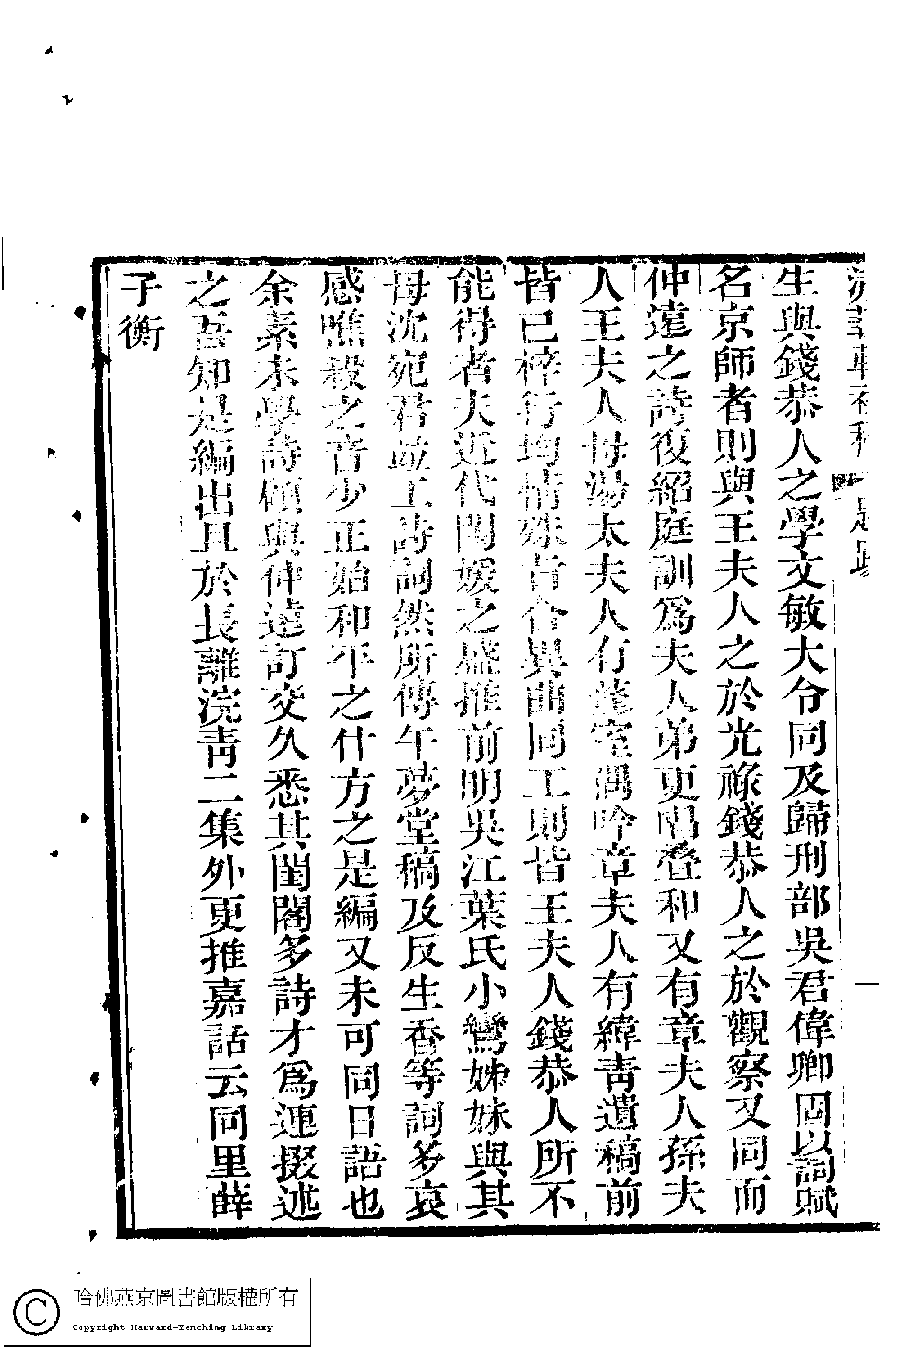 生與錢恭人之學文敏大令同及歸刑部吳君偉卿固以詞賦
名京師者則與王夫人之於光祿錢恭人之於觀察又同而
仲遠之詩復紹庭訓爲夫人弟更唱疊和又有章夫人孫夫
人王夫人母湯太夫人有蓬室偶吟章夫人有緯青遺稿前
皆已梓行均情殊旨合異曲同工則皆王夫人錢恭人所不
能得者夫近代閨媛之盛推前明吳江葉氏小鸞姊妹與其
母沈宛君並工詩詞然所傳午夢堂稿及反生香等詞多哀
感噍殺之音少正始和平之什方之是編又未可同日語也
余素未學詩顧與仲遠訂交久悉其閨閣多詩才爲連掇述
之吾知是編出且於長離浣青二集外更推嘉話云同里薛
子衡
哈佛燕京圖書館版權所有
Copyright Harvard-Yenching Library